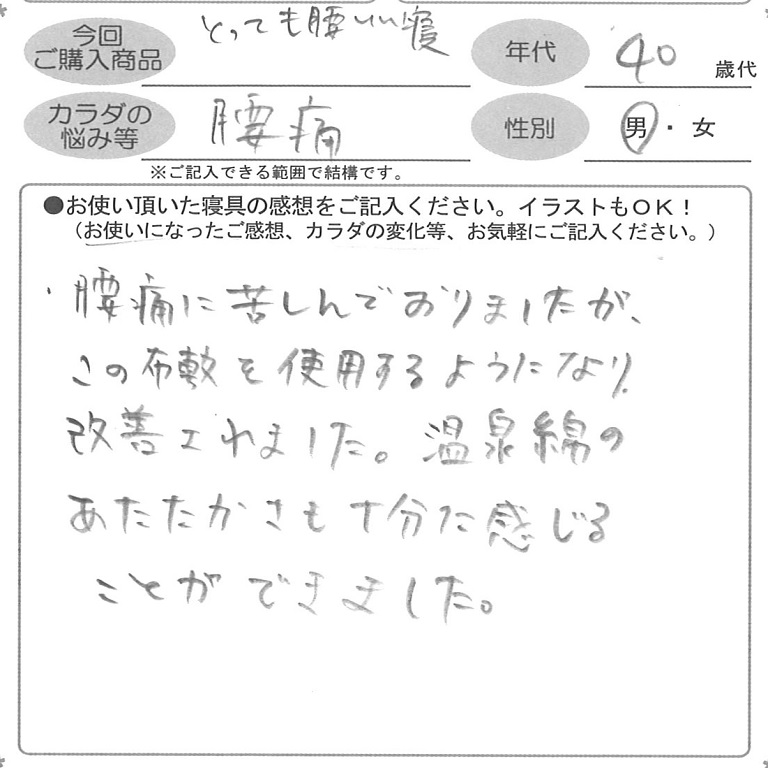 今回
ご購入商品
とっても腰いい寝
年代
40
歳代
カラダの
悩み等
腰痛
性別
男・女
※ご記入できる範囲で結構です。
●お使い頂いた寝具の感想をご記入ください。イラストもOK!
(お使いになったご感想、カラダの変化等、お気軽にご記入ください。)
・腰痛に苦しんでおりましたが、
この布敷を使用するようになり、
改善されました。温泉綿の
あたたかさも十分に感じる
ことができました。